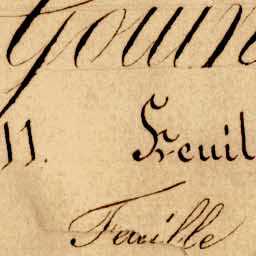 Gouin
11. Feuil
Feuille